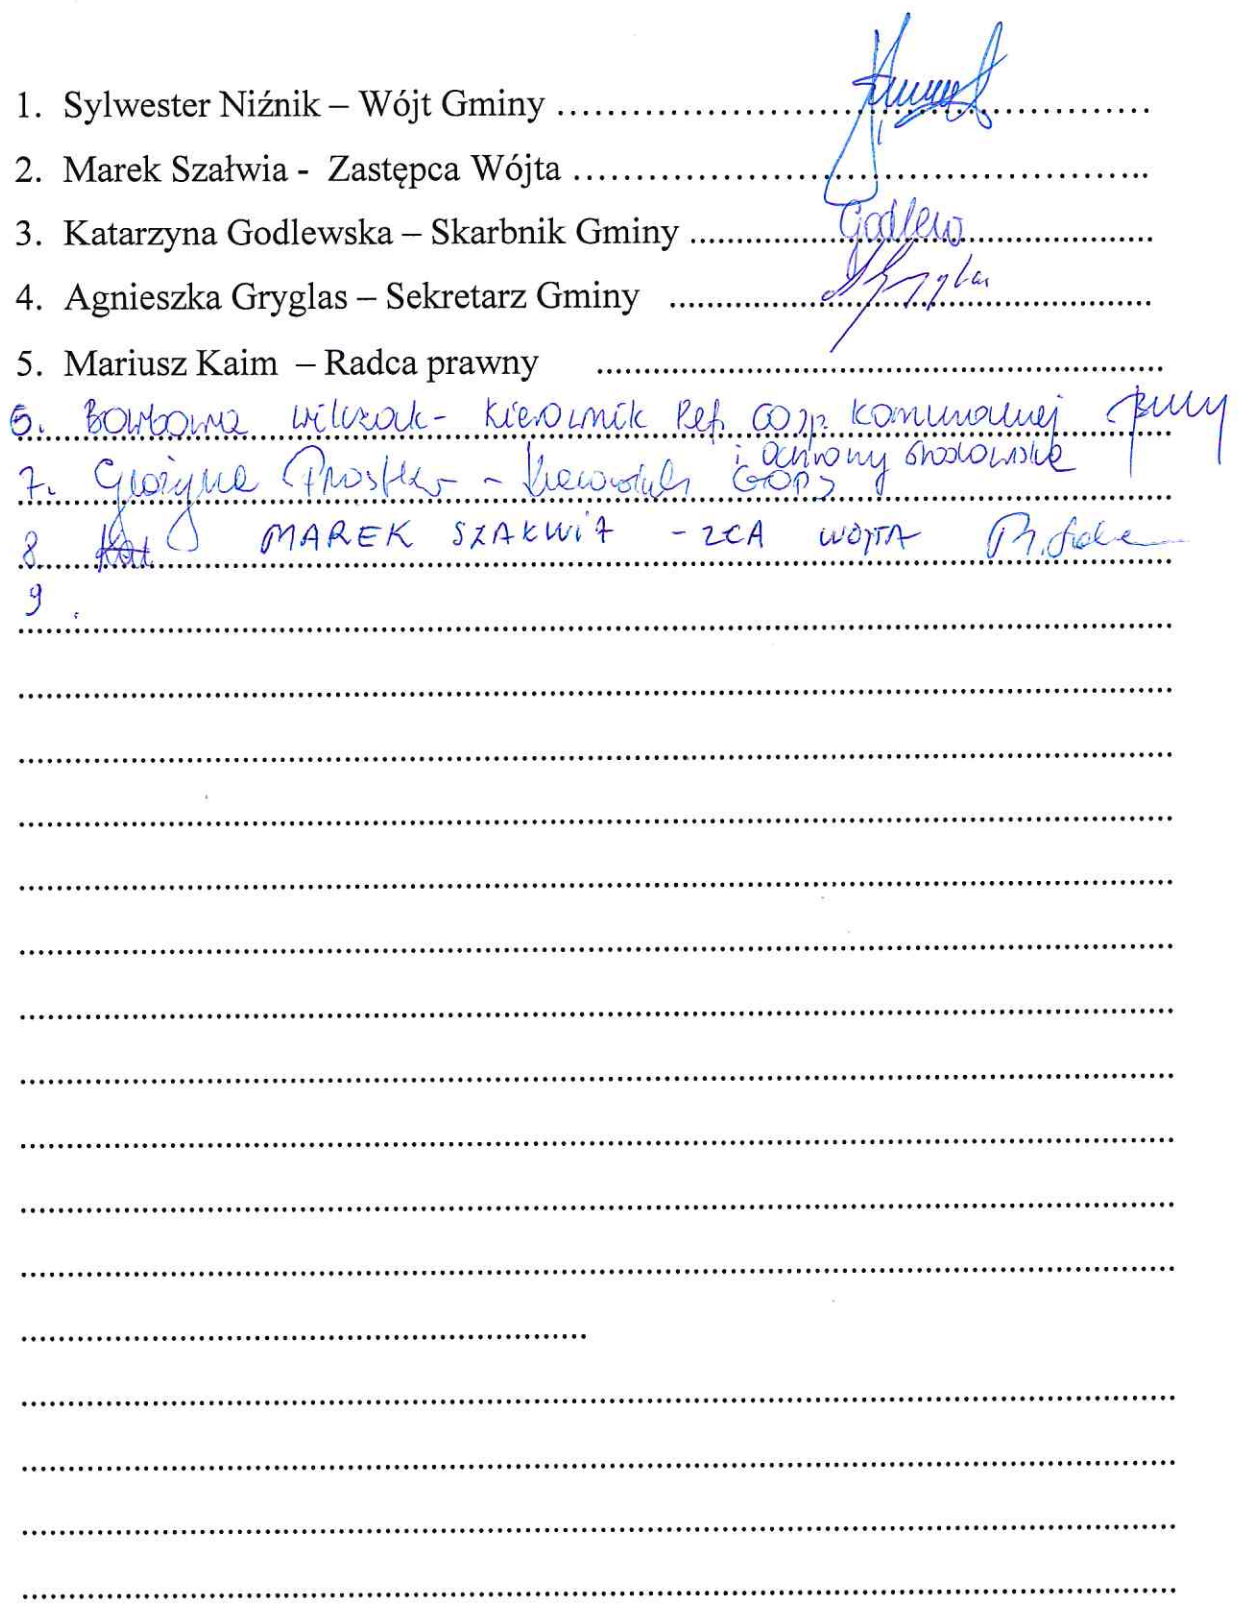 1. Sylwester Niźnik – Wójt Gminy ..............................................
2. Marek Szałwia - Zastępca Wójta .............................................
3. Katarzyna Godlewska – Skarbnik Gminy ............................................. Godlew
4. Agnieszka Gryglas – Sekretarz Gminy ............................................. AGryglas
5. Mariusz Kaim – Radca prawny .............................................
6. Barbara Wilczak - Kierownik Ref. Gosp. Komunalnej
i Ochrony środowiska
7. Grażyna - Kierownik GOPS
8. MAREK SZAŁWIA - ZCA WÓJTA
9.